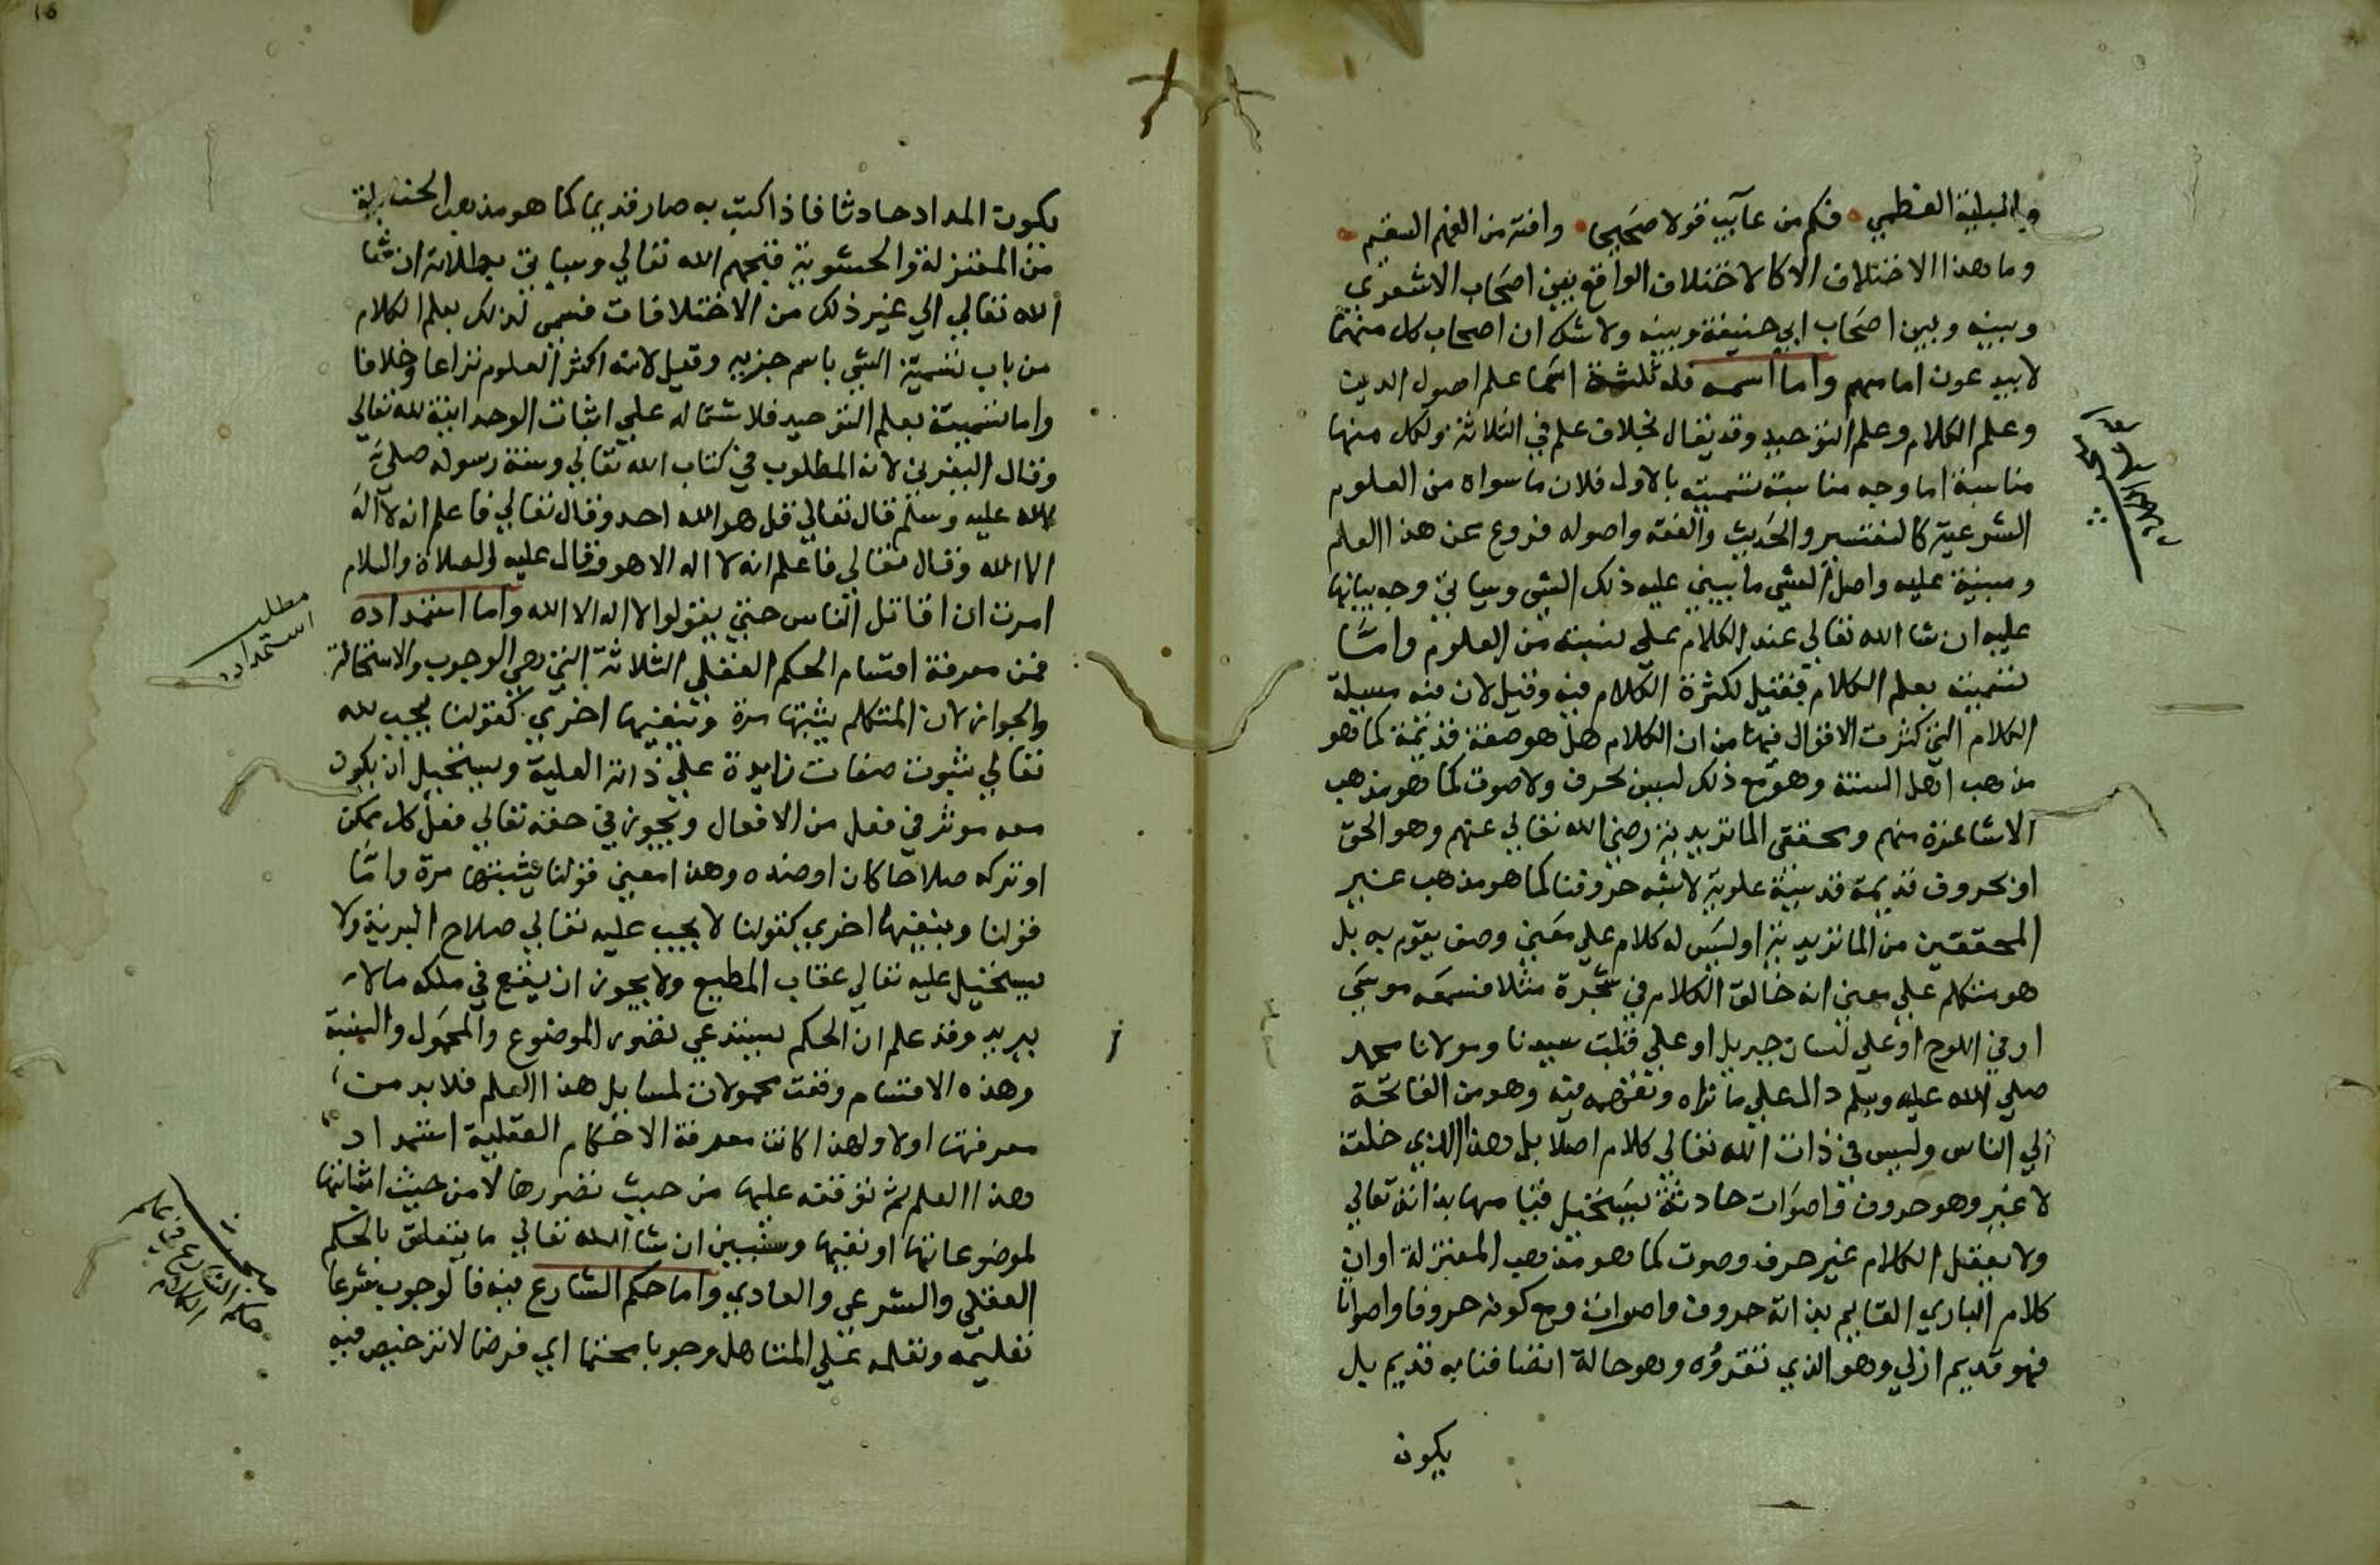 والبلية العظمي فكم من عآيب قولا صحيحا وافته من الفهم السقيم
وما هذا الاختلاف الا كالاختلاف الواقع بين اصحاب الاشعري
وبينه وبين اصحاب ابي حنيفة وبينه ولا شك ان اصحاب كل منهما
لا يبدعون امامهم واما اسمه فله ثلثة اسما علم اصول الدين
وعلم الكلام وعلم التوحيد وقد يقال بخلاف علم في الثلاثة ولكل منها
مناسبة اما وجه مناسبة تسميته بالاول فلان ما سواه من العلوم
الشرعية كالتفسير والحديث والفقه واصوله فروع عن هذا العلم
ومبنية عليه واصل الشي ما يبني عليه ذلك الشي وسياتي وجه بيانها
عليه ان شا الله تعالي عند الكلام علي نسبته من العلوم واما
تسميته بعلم الكلام فقيل لكثرة الكلام فيه وقيل لان فيه مسيلة
الكلام التي كثرت الاقوال فيها من ان الكلام هل هو صفة قديمة كما هو
مذهب اهل السنة وهو مع ذلك ليس بحرف ولا صوت كما هو مذهب
الاشاعرة منهم ومحققي الماتريدية رضي الله تعالي عنهم وهو الحق
او بحروف قديمة قدسية علوية لا تشبه حروفنا كما هو مذهب غير
المحققين من الماتريدية او ليس له كلام علي معني وصف يقوم به بل
هو متكلم علي معني انه خالق الكلام في شجرة مثلا فسمعه موسي
او في اللوح او علي لسان جبريل او علي قلب سيدنا ومولانا محمد
صلي الله عليه وسلم دالا علي ما نراه ونفهمه فيه وهو من الفاتحة
الي الناس وليس في ذات الله تعالي كلام اصلا بل هذا الذي خلقه
لا غير وهو حروف واصوات حادثة يستحيل قيامها بذاته تعالي
ولا يعقل الكلام غير حرف وصوت كما هو مذهب المعتزلة او ان
كلام الباري القايم بذاته حروف واصوات ومع كونه حروفا واصواتا
فهو قديم ازلي وهو الذي نقرؤه وهو حالة اتصافنا به قديم بل
يكون
يكون المداد حادثا فاذا كتب به صار قديما كما هو مذهب الحنابلة
من المعتزلة والحشوية قبحهم الله تعالي وسياتي بطلانه ان شا
الله تعالي الي غير ذلك من الاختلافات فسمي لذلك بعلم الكلام
من باب تسمية الشي باسم جزيه وقيل لانه اكثر العلوم نزاعا وخلافا
واما تسميته بعلم التوحيد فلاشتماله علي اثبات الوحدانية لله تعالي
وقال لانه المطلوب في كتاب الله تعالي وسنة رسوله صلي
الله عليه وسلم قال تعالي قل هو الله احد وقال تعالي فاعلم انه لا اله
الا الله وقال تعالي فاعلم انه لا اله الا هو وقال عليه الصلاة والسلام
امرت ان اقاتل الناس حتي يقولوا لا اله الا الله واما استمداده
فمن معرفة اقسام الحكم العقلي الثلاثة التي هي الوجوب والاستحالة
والجواز لان المتكلم يثبتها مرة وينفيها اخري كقولنا يجب لله
تعالي ثبوت صفات زايدة علي ذاته العلية ويستحيل ان يكون
معه موثر في فعل من الافعال ويجوز في حقه تعالي فعل كل ممكن
او تركه صلاحا كان او ضده وهذا معني قولنا يثبتها مرة واما
قولنا وينفيها اخري كقولنا لا يجب عليه تعالي صلاح البرية ولا
يستحيل عليه تعالي عقاب المطيع ولا يجوز ان يقع في ملكه ما لا
يريد وقد علم ان الحكم يستدعي تصور الموضوع والمحمول والنسبة
وهذه الاقسام وقعت محمولات لمسايل هذا العلم فلا بد من
معرفتها اولا ولهذا كانت معرفة الاحكام العقلية استمداد
هذا العلم لتوقفه عليها من حيث تصورها لا من حيث اثباتها
لموضوعاتها او نفيها وسنبين ان شا الله تعالي ما يتعلق بالحكم
العقلي والشرعي والعادي واما حكم الشارع فيه فالوجوب شرعا
تعليمه وتعلمه علي المتاهل وجوبا محتما اي فرضا لا ترخيص فيه
مطلب
استمداده
حكم الشارع في علم
الكلام